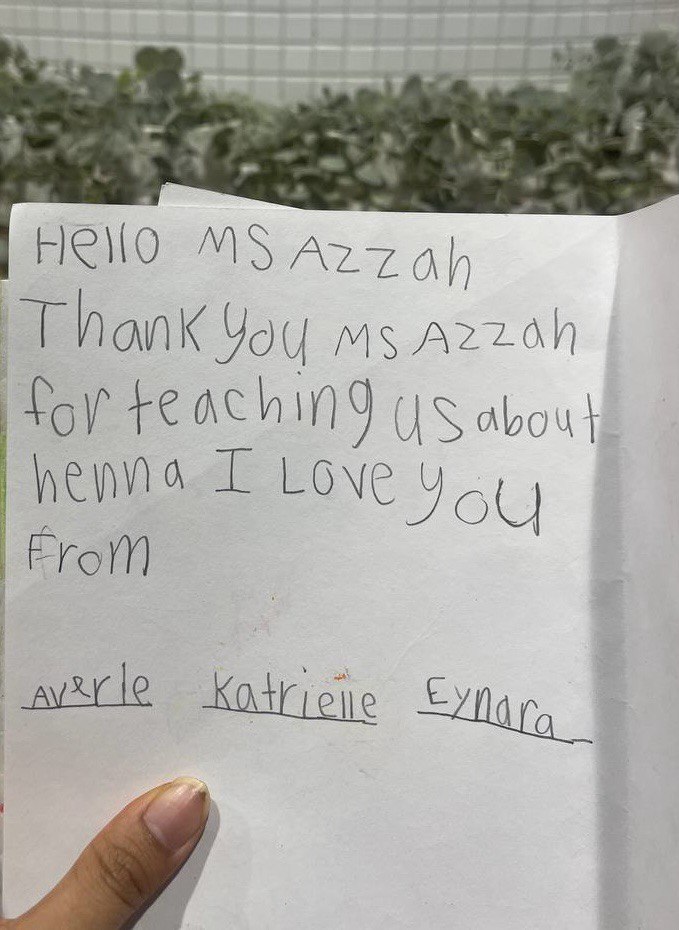 Hello MS Azzah
Thank you MS Azzah
for teaching us about
henna I Love you
From
Averle Katrielle Eynara